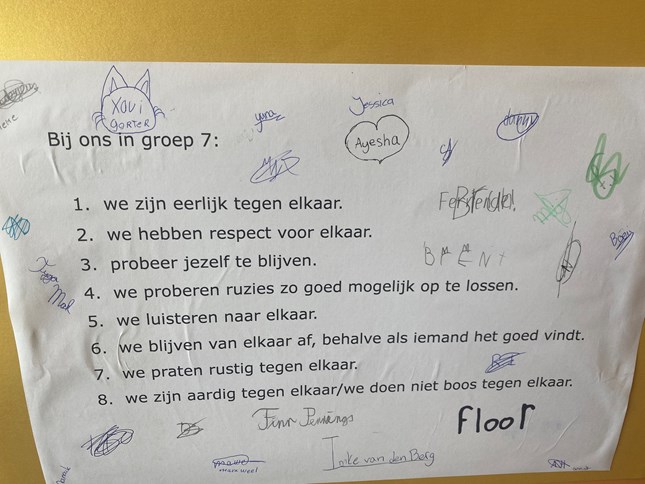 XAVi
GORTER
yara
Jessica
Ayesha
Bij ons in groep 7:
1. we zijn eerlijk tegen elkaar.
2. we hebben respect voor elkaar.
3. probeer jezelf te blijven.
4. we proberen ruzies zo goed mogelijk op te lossen.
5. we luisteren naar elkaar.
6. we blijven van elkaar af, behalve als iemand het goed vindt.
7. we praten rustig tegen elkaar.
8. we zijn aardig tegen elkaar/we doen niet boos tegen elkaar.
BrENt
Finn Pennings
Floor
Imke van den Berg